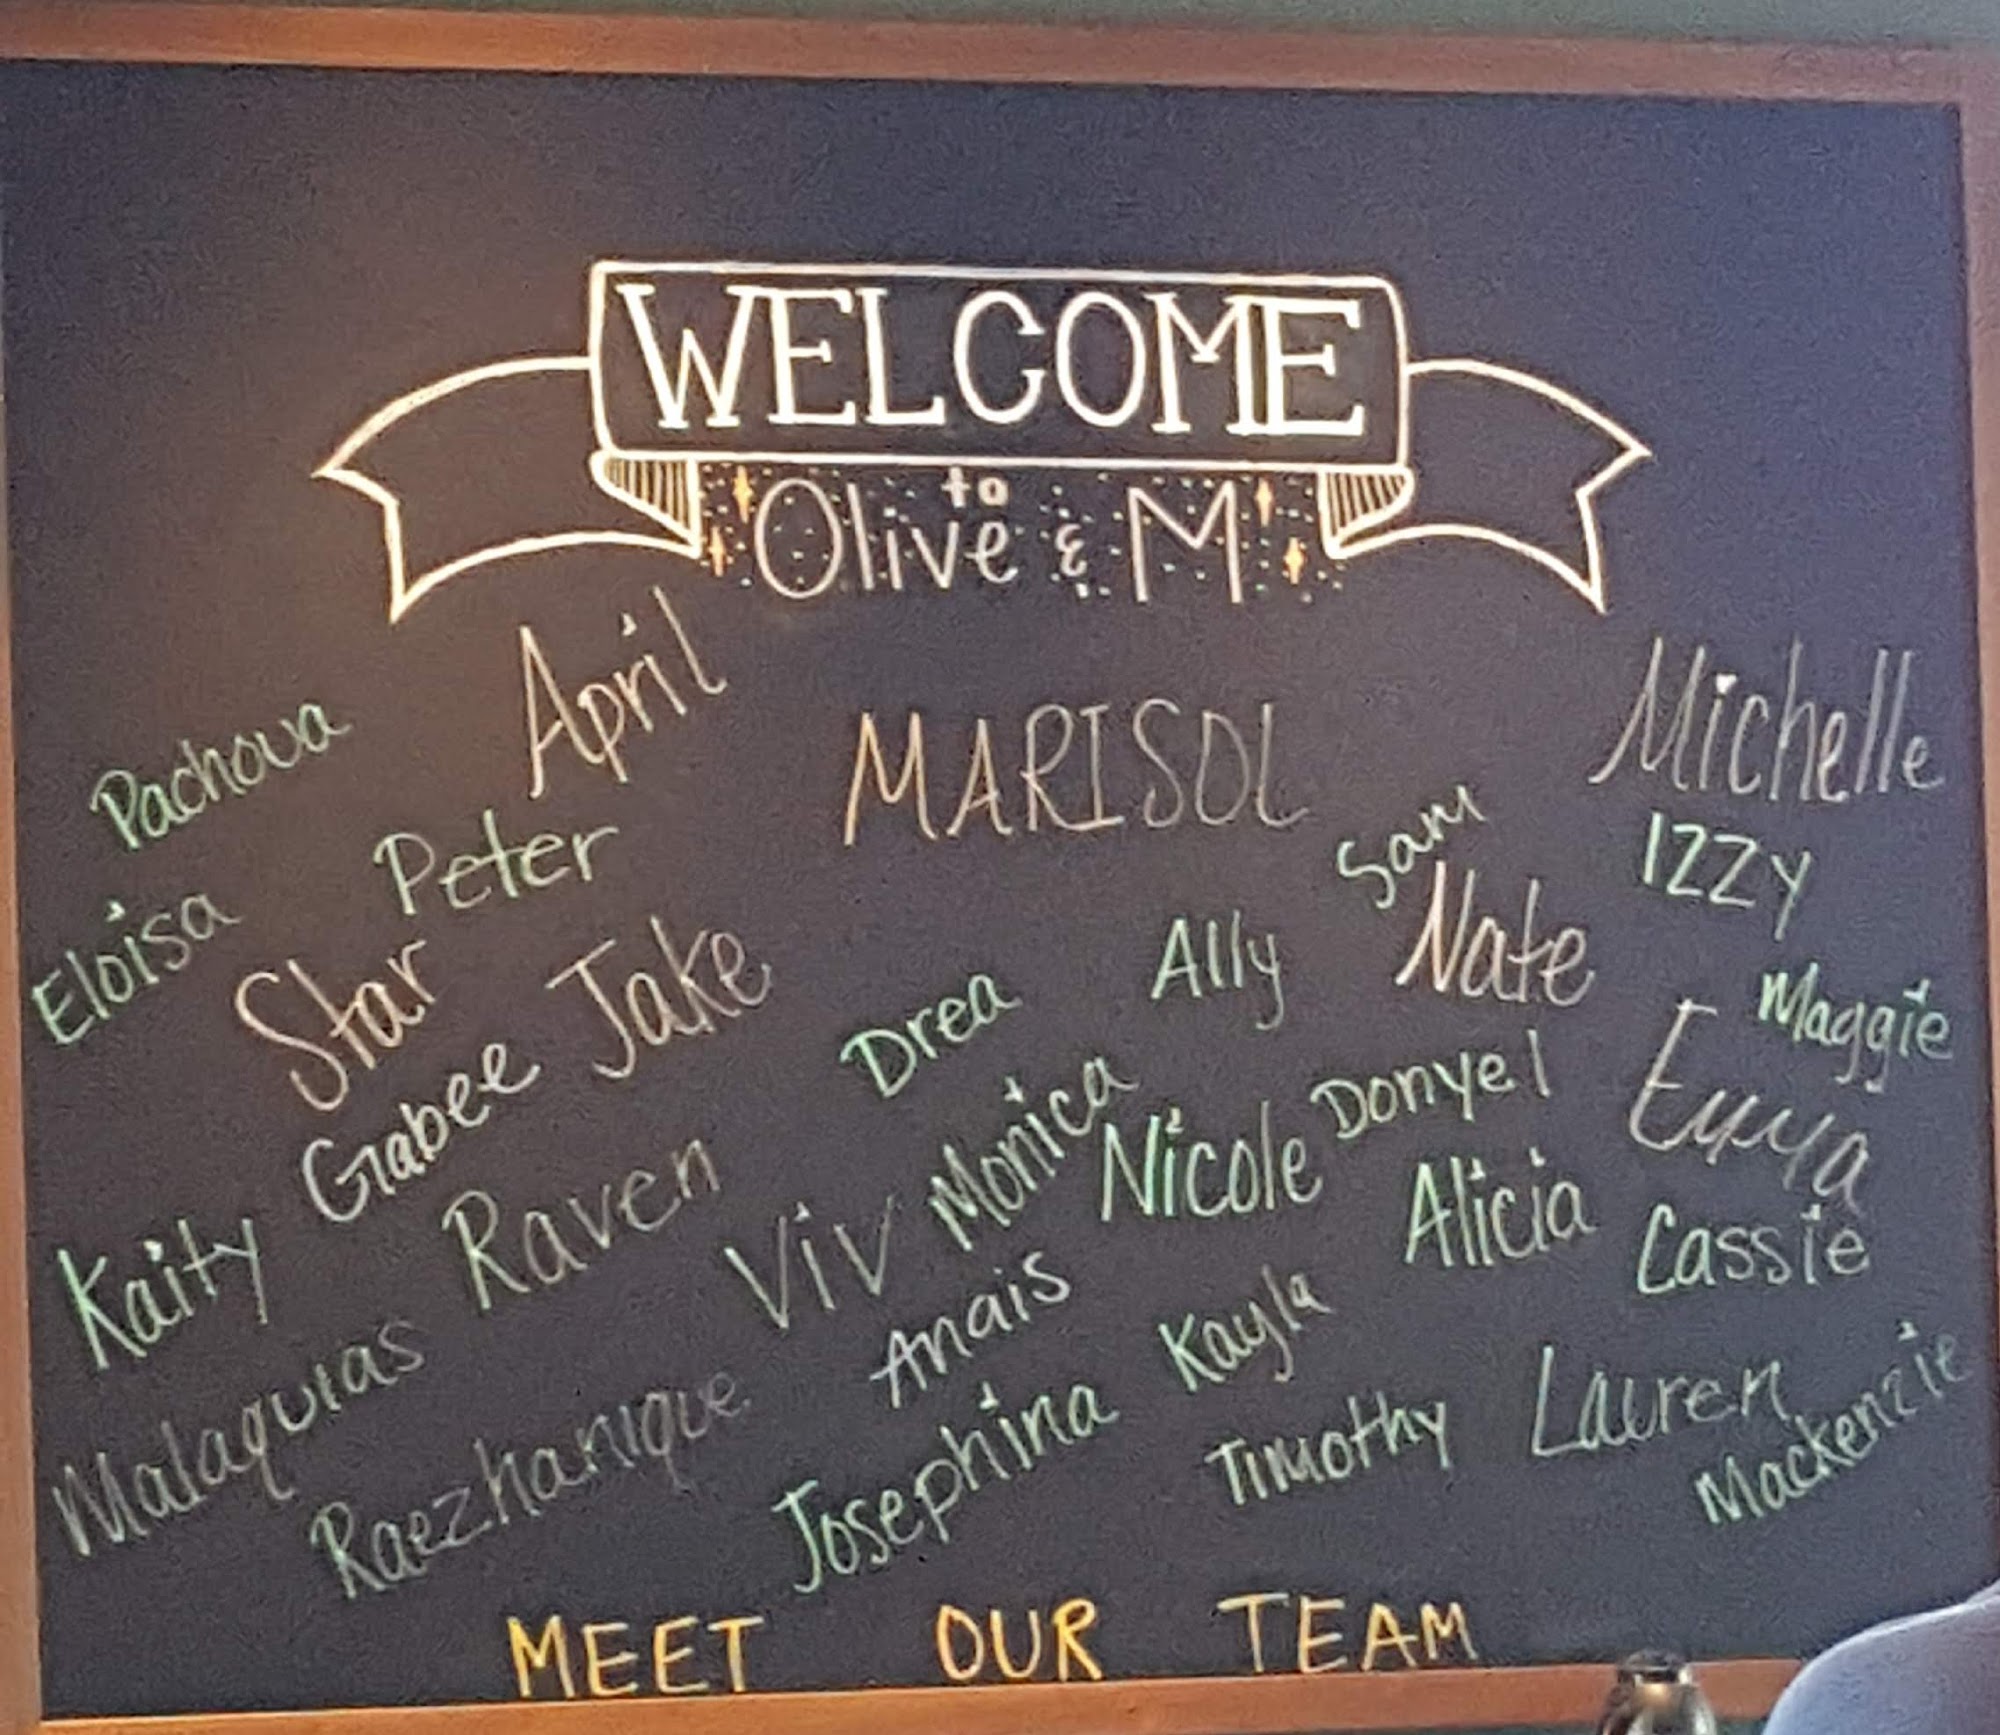 WELCOME
to
Olive & M
April
Pachova
MARISOL
Michelle
Peter
Sam
IZZY
Eloisa
Star
Jake
Ally
Nate
Maggie
Drea
Gabee
Monica
Donyel
Emma
Raven
Nicole
Alicia
Kaity
Viv
Cassie
Anais
Kayla
Malaquias
Raezhanique
Lauren
Josephina
Timothy
Mackenzie
MEET OUR TEAM